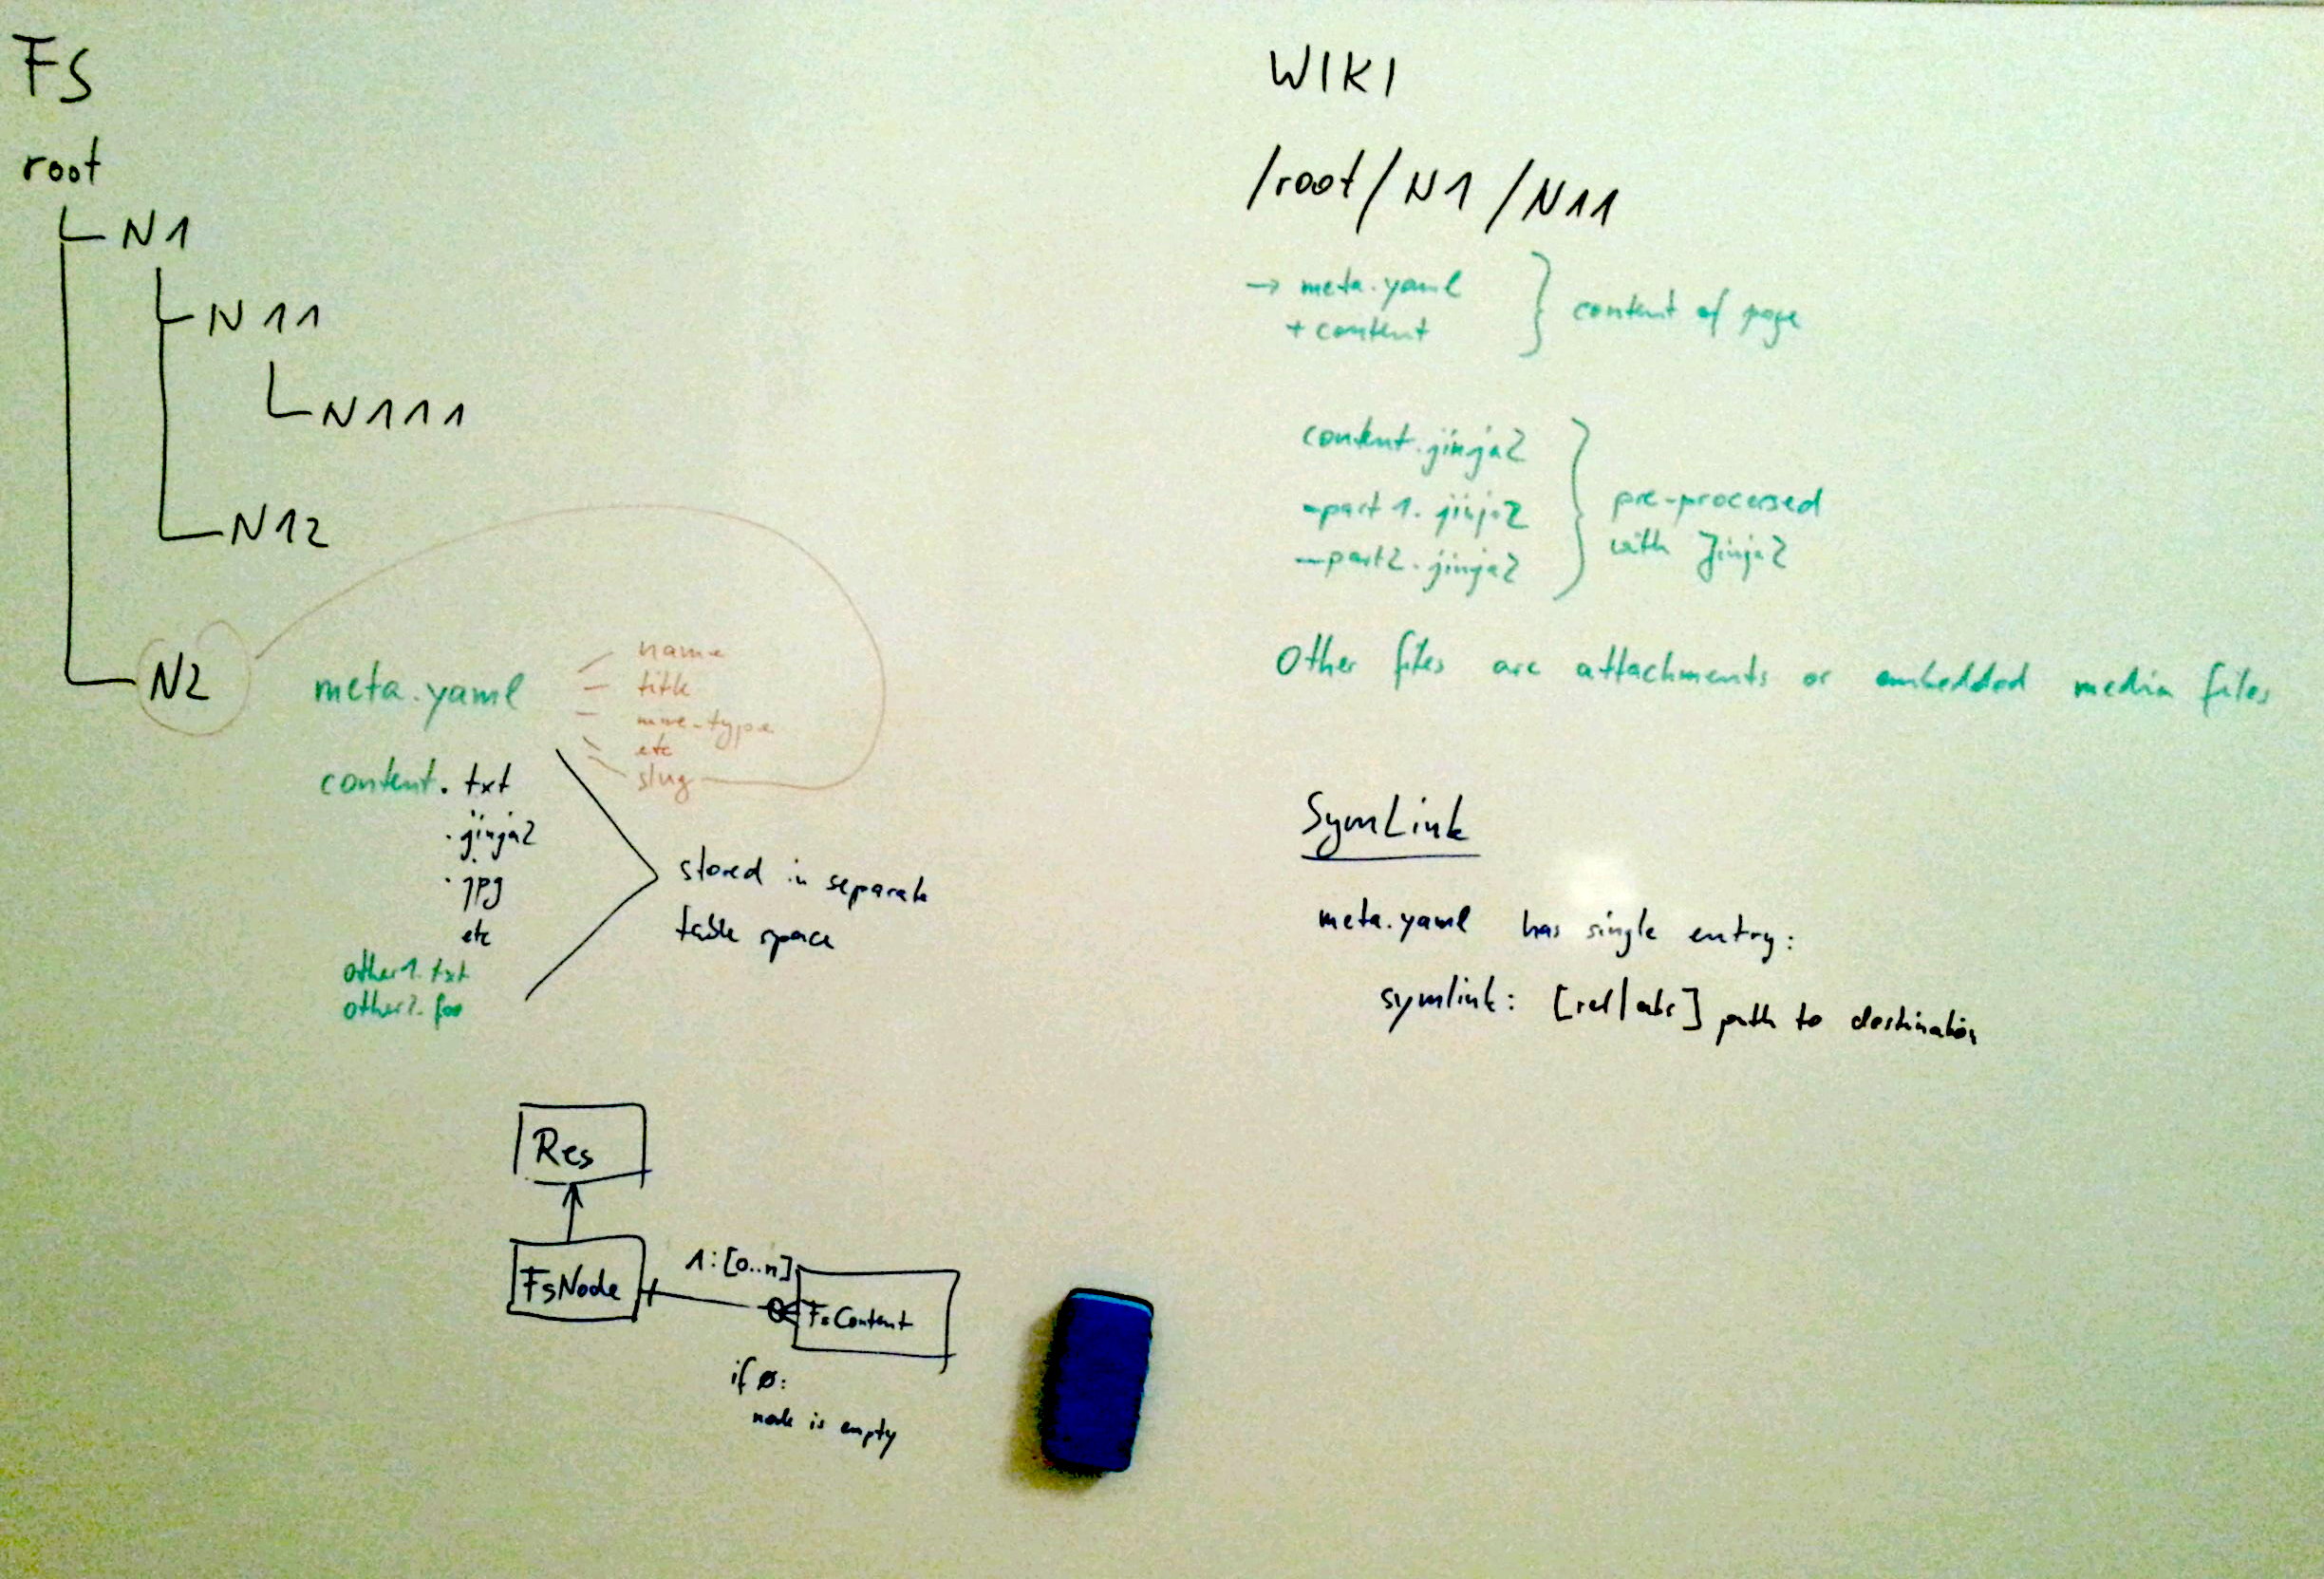 FS
root
N1
N11
N111
N12
N2
meta.yaml
name
title
mime-type
etc
slug
content. txt
. jinja2
. jpg
etc
other1.txt
other2.foo
stored in separate
table space
Res
FsNode
1:[0..n]
FsContent
if ø:
node is empty
WIKI
/root/N1/N11
→ meta.yaml
+ content
content of page
content.jinja2
-part1.jinja2
-part2.jinja2
pre-processed
with Jinja2
Other files are attachments or embedded media files
SymLink
meta.yaml has single entry:
symlink: [rel/abs] path to destination